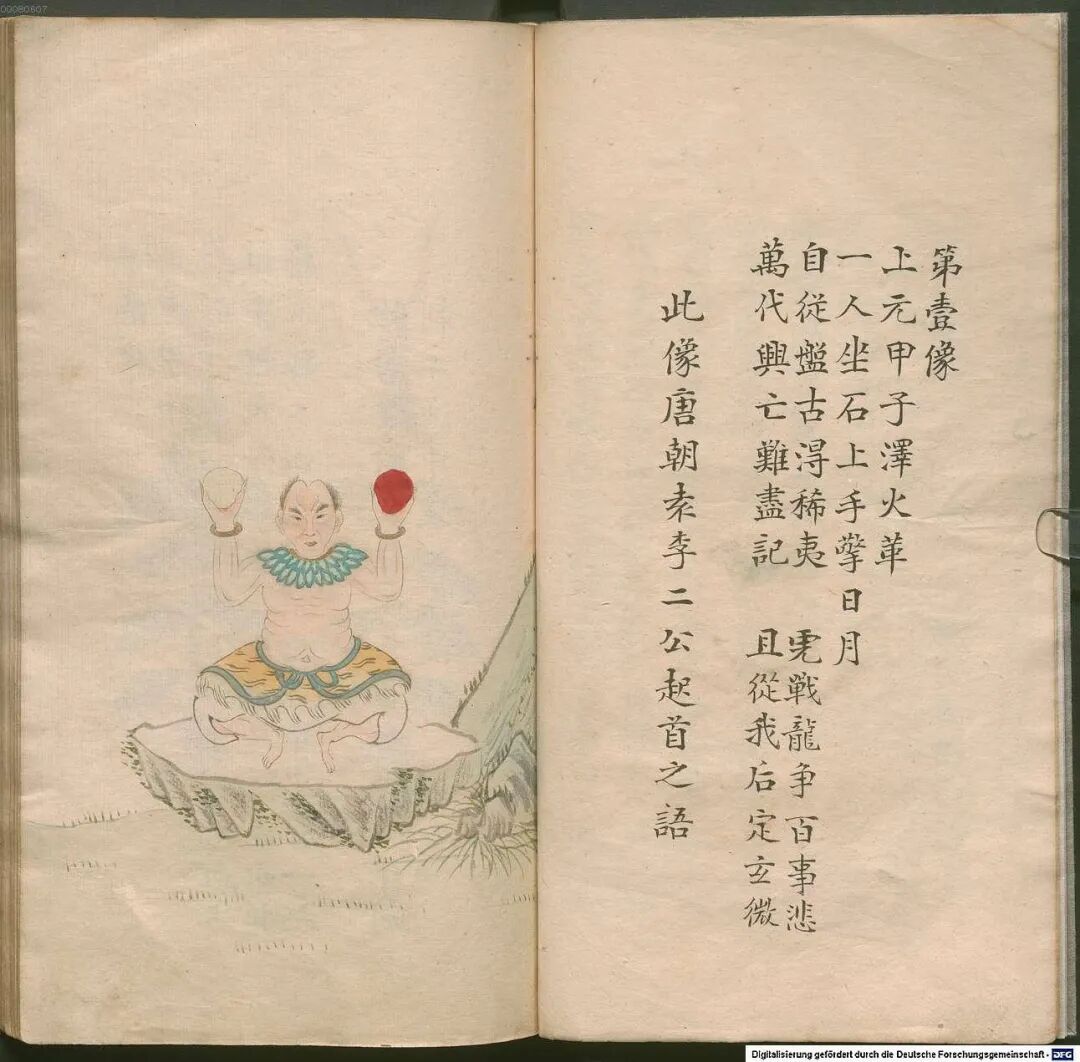 第壹像
上元甲子澤火革
一人坐石上手擎日月
自從盤古得稀夷 虎戰龍爭百事悲
萬代興亡難盡記 且從我后定玄微
此像唐朝袁李二公起首之語
00080607
Digitalisierung gefördert durch die Deutsche Forschungsgemeinschaft - DFG